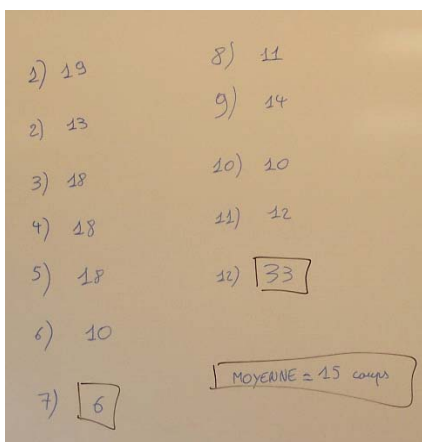 1) 19
2) 13
3) 18
4) 18
5) 18
6) 10
7) 6
8) 11
9) 14
10) 10
11) 12
12) 33
MOYENNE = 15 coups